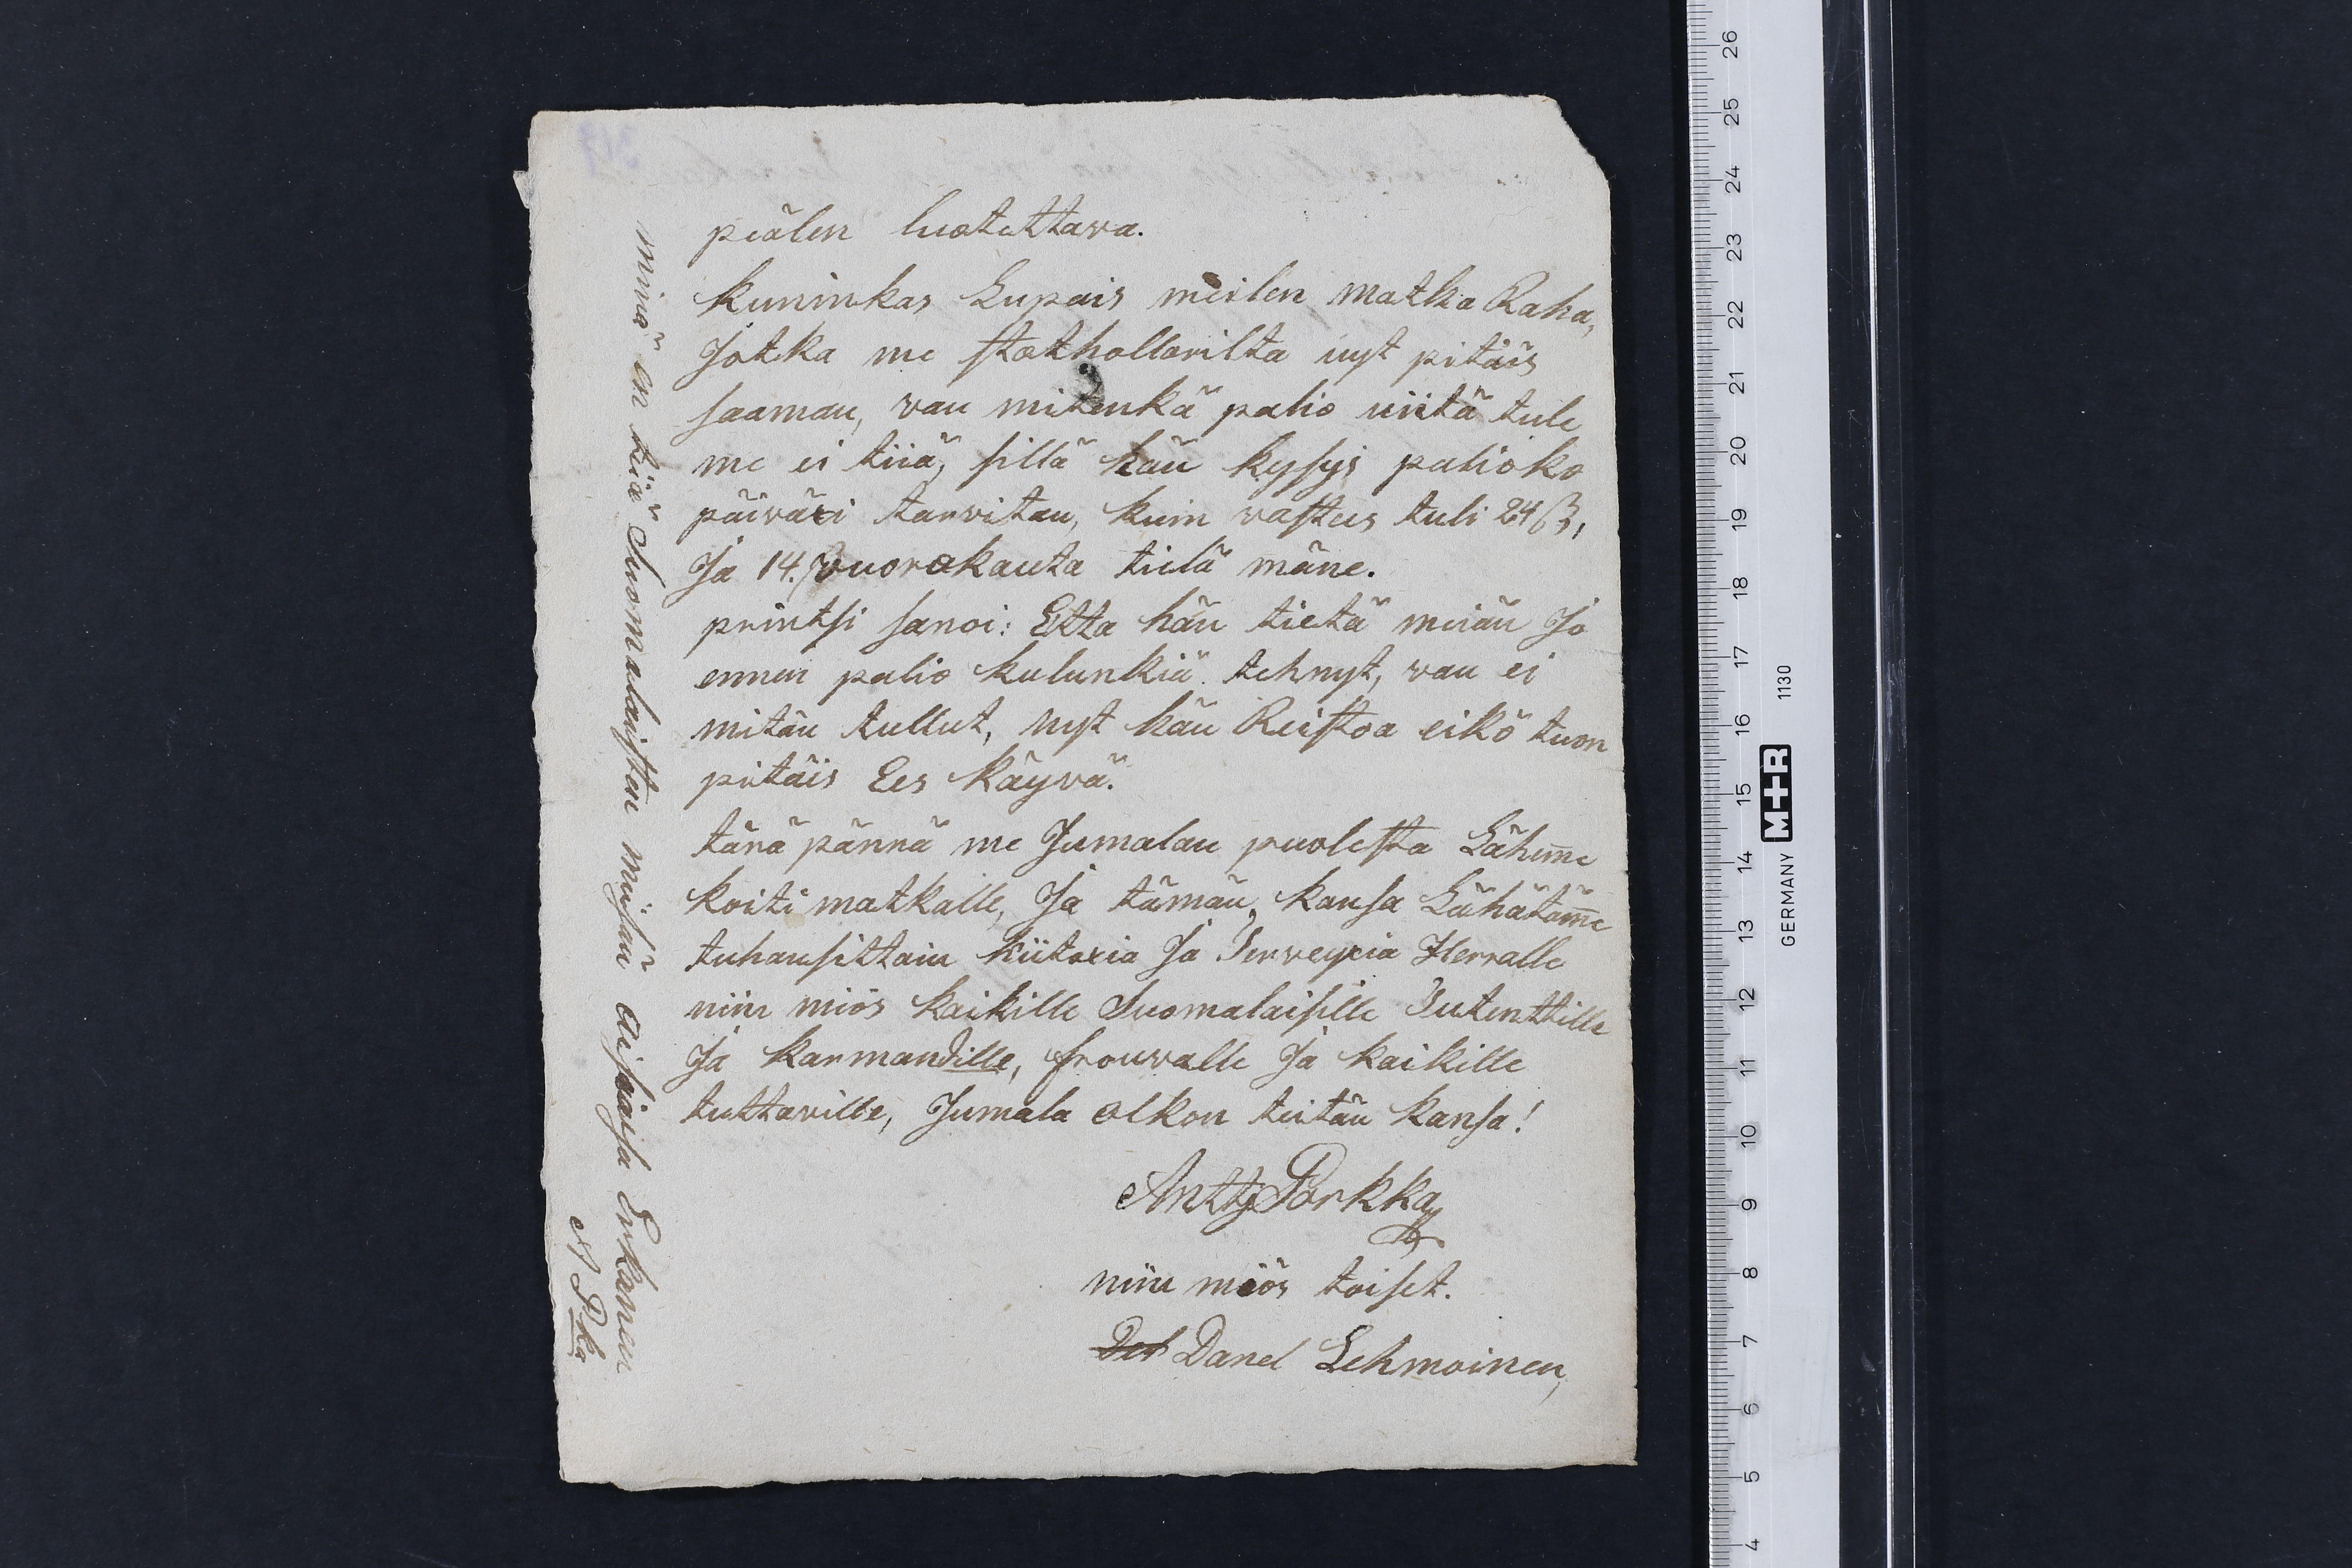 piälen luotettava.
Kuninkas Lupais meilen matka Raha,
Jotka me stathollerilta nyt pitäis
saaman, van mitenkä palio niitä tule
me ei tiiä, sillä hän kysys palioko
päiväxi tarvitan, kuin vastus tuli 24 ß,
Ja 14. vuorokauta tielä mäne.
printsi sanoi: Etta hän tietä meiän Jo
ennen palio kulunkia tehnyt, van ei
mitän tullut, nyt hän Reistoa eikö tuon
pitäis Ees käyvä.
tänä pännä me Jumalan puolesta Lähem̄e
koiti matkalle, Ja tämän, kansa Lähätäm̄e
tuhansittain kiitoxia Ja Terveyxia Herralle
niin miös kaikille Suomalaisille Sutenttille
Ja karmandille, frouvalle Ja kaikille
tuttaville, Jumala olkon teitän kansa!
Antti Porkka
niin miös toiset.
Danel Lehmoinen,
minä en tiiä Suomalaisten miisiä aisiaisa Enkänen
A P.ka
26
25
24
23
22
21
20
19
18
17
16
15
14
13
12
11
10
9
8
7
6
5
4
GERMANY M+R 1130